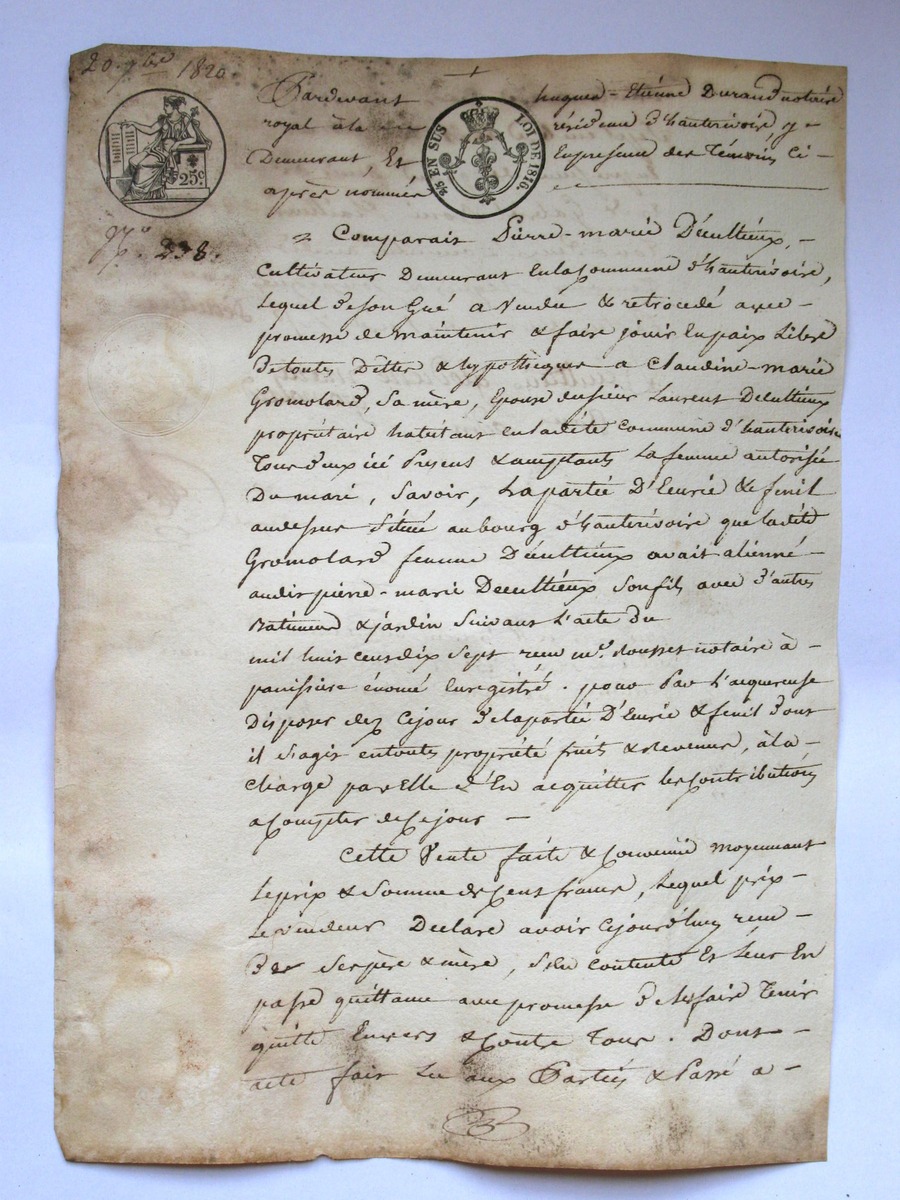 20 9bre 1820.
25c.
25 EN SUS LOI DE 1816.
No. 238.
Pardevant hugues-Etienne Durand notaire
royal à la résidence d'hauterivoire y
Demeurant, Et En presence des Témoins ci-
après nommés
Comparait Pierre-marie Décultieux,
Cultivateur Demeurant En la Commune d'hauterivoire,
Lequel de son Gré a Vendu & retrocédé avec
promesse de maintenir & faire jouir En paix Libre
de toutes Dettes & hypothèques a Claudine-marie
Gromolard, Sa mère, Epouse du sieur Laurent Decultieux
propriétaire habitant en la dite commune d'hauterivoire
Tous deux ici Presens & acceptants La femme autorisée
Du mari, Savoir, La partie D'Ecurie & fenil
au dessus Situé au bourg d'hauterivoire que la dite
Gromolard femme Décultieux avait alienné
au dit pierre-marie Decultieux Son fils avec d'autres
Batiments & jardin Suivant L'acte du
mil huit cent dix Sept reçu me. rousset notaire à
panissière énoncé Enregistré. pour Par L'acquereuse
Disposer dez Ce jour de la partie D'Ecurie & fenil Dont
il s'agit en toute propriété fruits & Revenus, à la
Charge par Elle d'En acquitter les Contributions
a Compter de Ce jour
Cette Vente faite & Convenue moyennant
Le prix & Somme de Cent francs, Lequel prix
Le vendeur Declare avoir Cejourd'huy reçu
de Ses père & mère, S'en contente Et Leur En
passe quittance avec promesse de Les faire Tenir
quitte Envers & Contre Tous. Dont
acte fait Lu aux Parties & Passé a